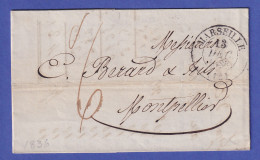 MARSEILLE
13
Messieurs
C. Berard & fils
Montpellier